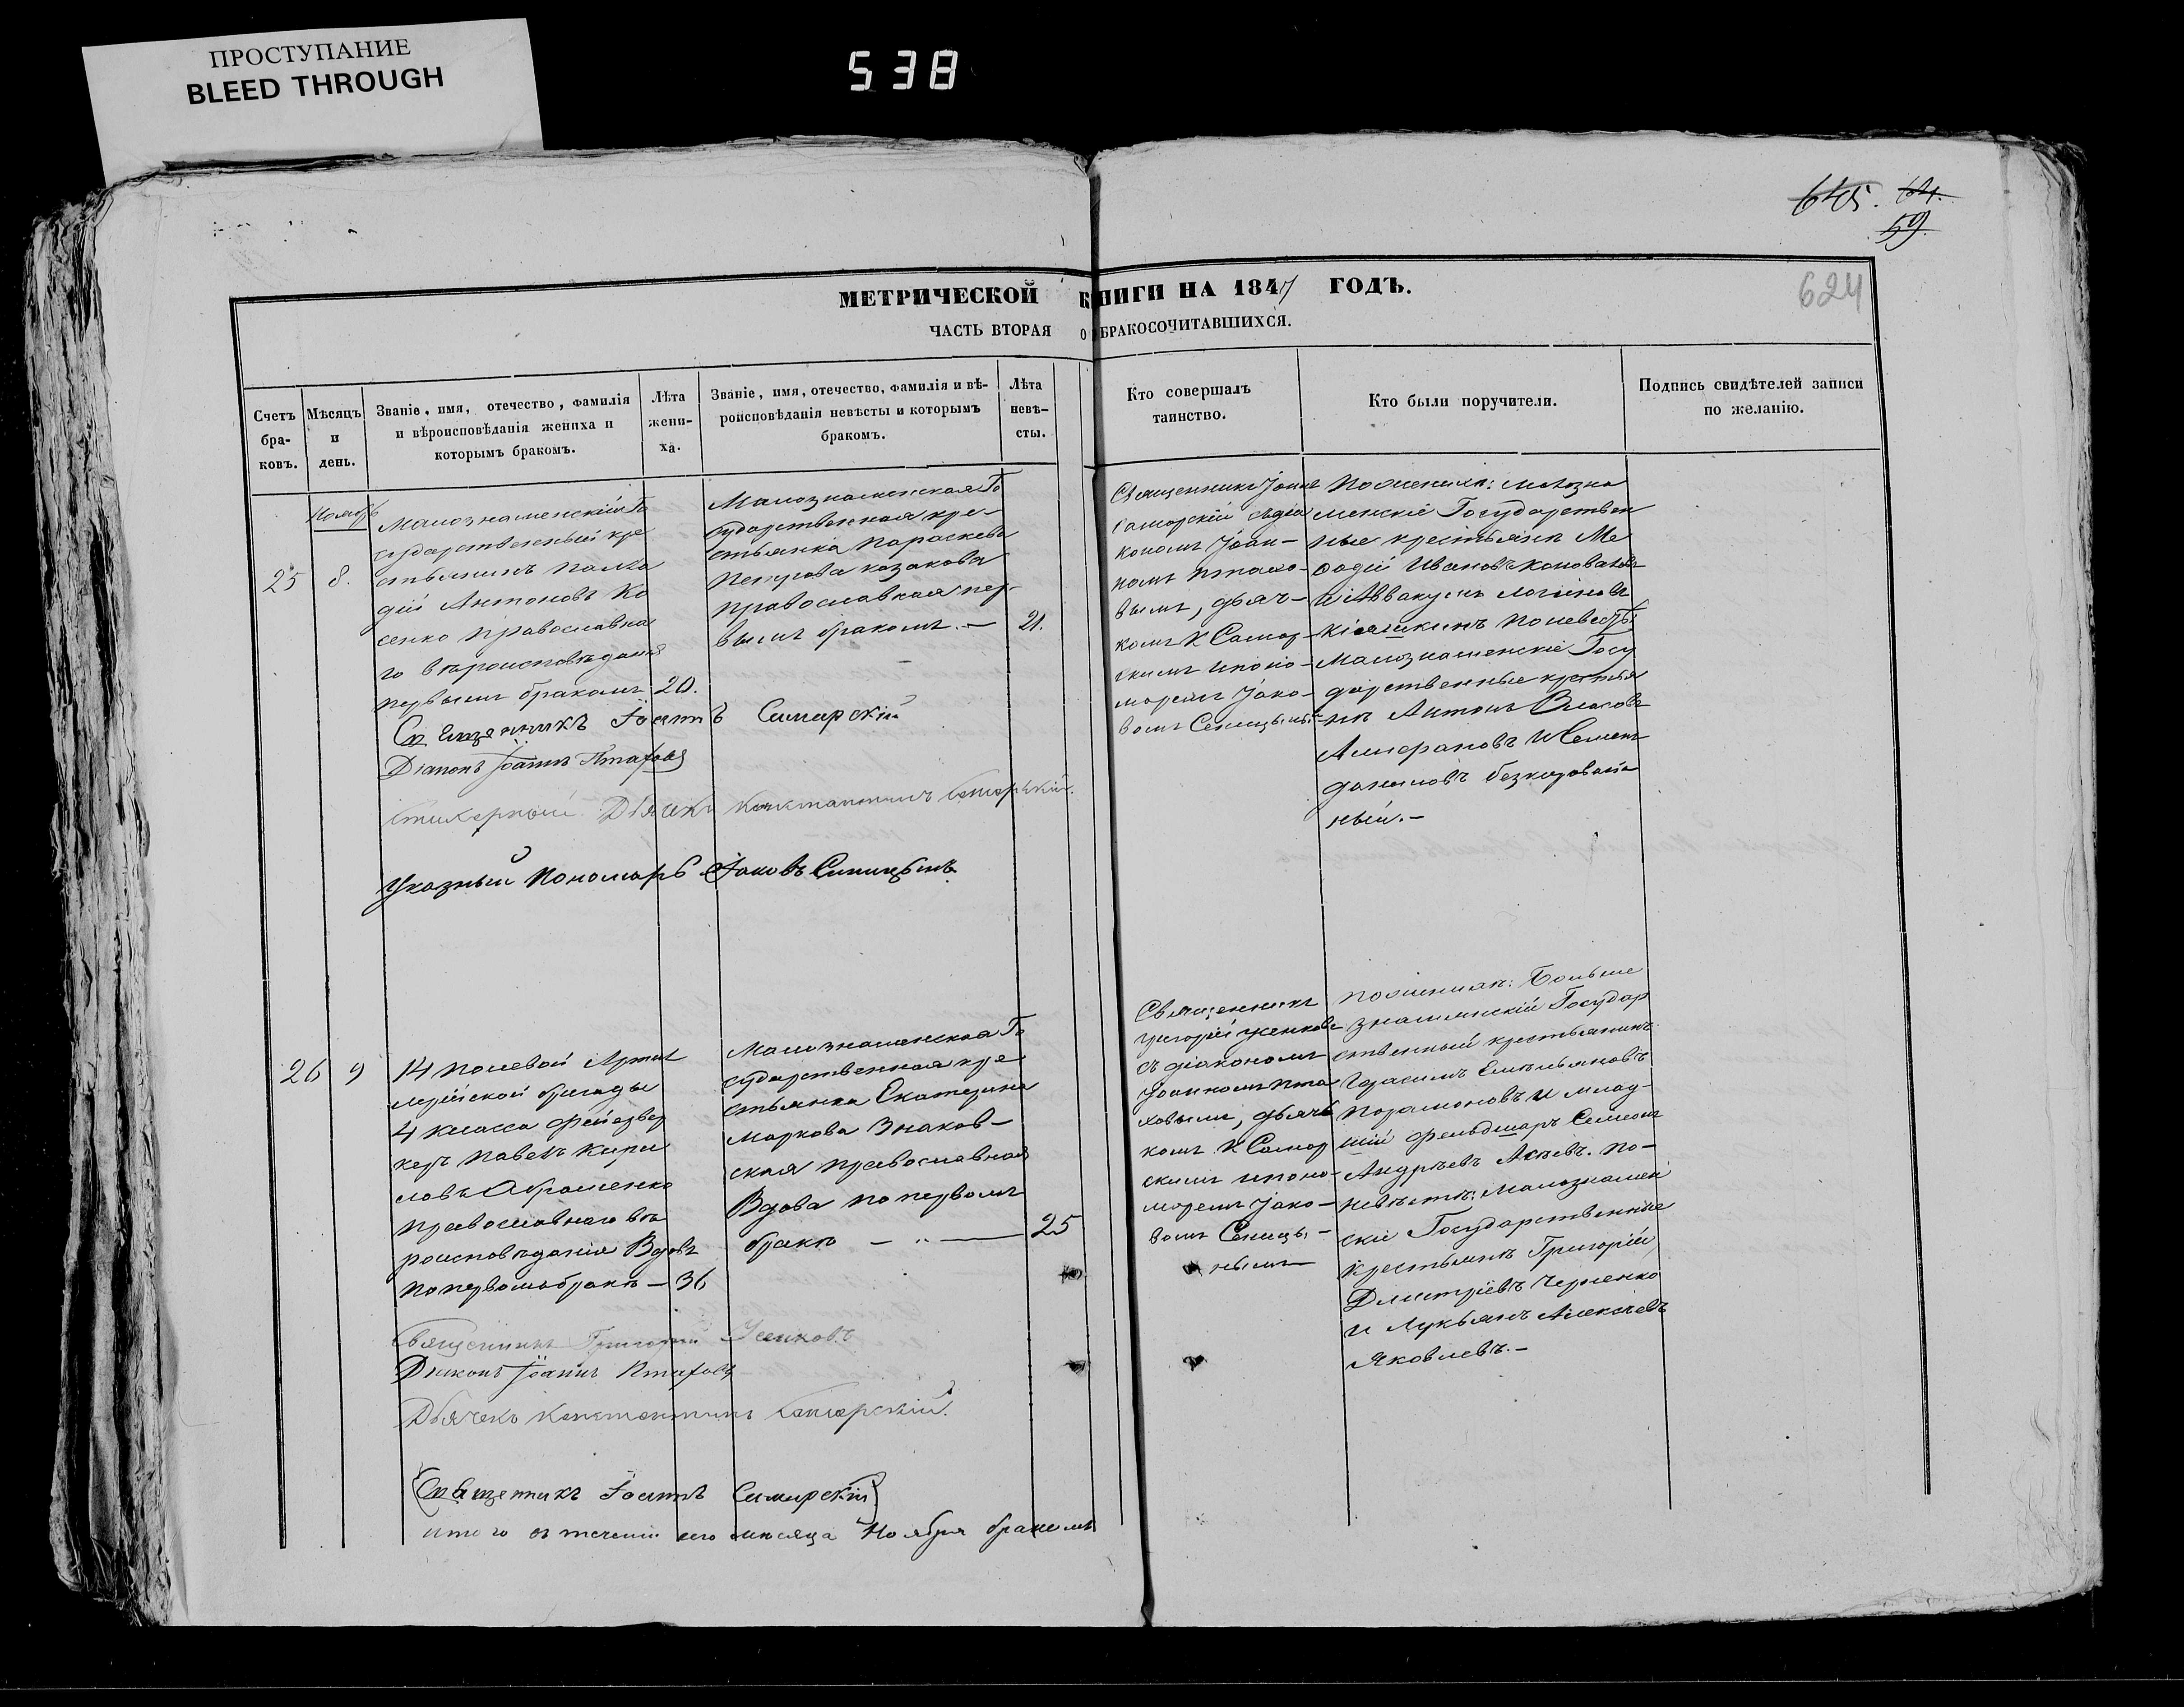 ПРОСТУПАНИЕ
BLEED THROUGH
538
645. 64.
59.
624
МЕТРИЧЕСКОЙ КНИГИ НА 1847 ГОДЪ.
ЧАСТЬ ВТОРАЯ О БРАКОСОЧИТАВШИХСЯ.
Счетъ
бра-
ковъ.
Мѣсяцъ
и
день.
Званіе, имя, отечество, фамилія
и вѣроисповѣданія жениха и
которымъ бракомъ.
Лѣта
жени-
ха.
Званіе, имя, отечество, фамилія и вѣ-
роисповѣданія невѣсты и которымъ
бракомъ.
Лѣта
невѣ-
сты.
Кто совершалъ
таинство.
Кто были поручители.
Подпись свидѣтелей записи
по желанію.
Ноябрь
25
8.
Малознаменскій Го
сударственный кре
стьянинъ Палла
дій Антоновъ Ко
сенко православна
го вѣроисповѣданія
первымъ бракомъ
20.
Малознаменская Го
сударственная кре-
стьянка Параскева
Петрова Козакова
православная пер-
вымъ бракомъ. —
21.
Священникъ Іоаннъ
Самарскій съ діа
кономъ Іоан-
номъ Птахо-
вымъ, дьяч-
комъ К Самар-
скимъ и поно-
маремъ Іако-
вомъ Сеницынымъ
По женихѣ: Малозна
менскіе Государствен
ные крестьяне Ме
фодій Ивановъ Коновалов
и Аввакумъ Логиновъ
Кіяшкинъ по невестѣ:
Малознаменскіе Госу
дарственные крестья
не Антонъ Власовъ
и Семенъ
Даниловъ
ный. —
Священникъ Іоаннъ Самарскій
Діаконъ Іоаннъ Птаховъ
Стихарный Дьячекъ Константинъ Самарскій.
Указный Пономарь Іаковъ Синицынъ
26
9
14 полевой Артил
лерійской бригады
4 класса фейервер
керъ Павелъ Кири
ловъ Абраменко
православнаго вѣ
роисповѣданія Вдовъ
по первомъ бракѣ —
36
Малознаменская Го
сударственная кре
стьянка Екатерина
Маркова Знаков-
ская православная
Вдова по первомъ
бракѣ — „ —
25
Священникъ
Григорій Усенковъ
съ діакономъ
Іоанномъ Пта
ховымъ, дьяч
комъ К Самар
скимъ и поно-
маремъ Іако-
вомъ Сеницы-
нымъ
По женихѣ: Больше
знаменскій Государ
ственный крестьянинъ
Герасимъ Емельяновъ
Парамоновъ и млад-
шій фельдшаръ Семенъ
Андреевъ Асѣевъ. По-
невѣстѣ: Малознамен
скіе Государственные
крестьяне Григорій
Дмитріевъ Черненко
и Лукьянъ Алексѣевъ
Яковлевъ. —
Священникъ Григорій Усенковъ
Діаконъ Іоаннъ Птаховъ
Дьячекъ Константинъ Самарскій.
Священникъ Іоаннъ Самарскій
итого въ теченіи сего мѣсяца Ноября браковъ